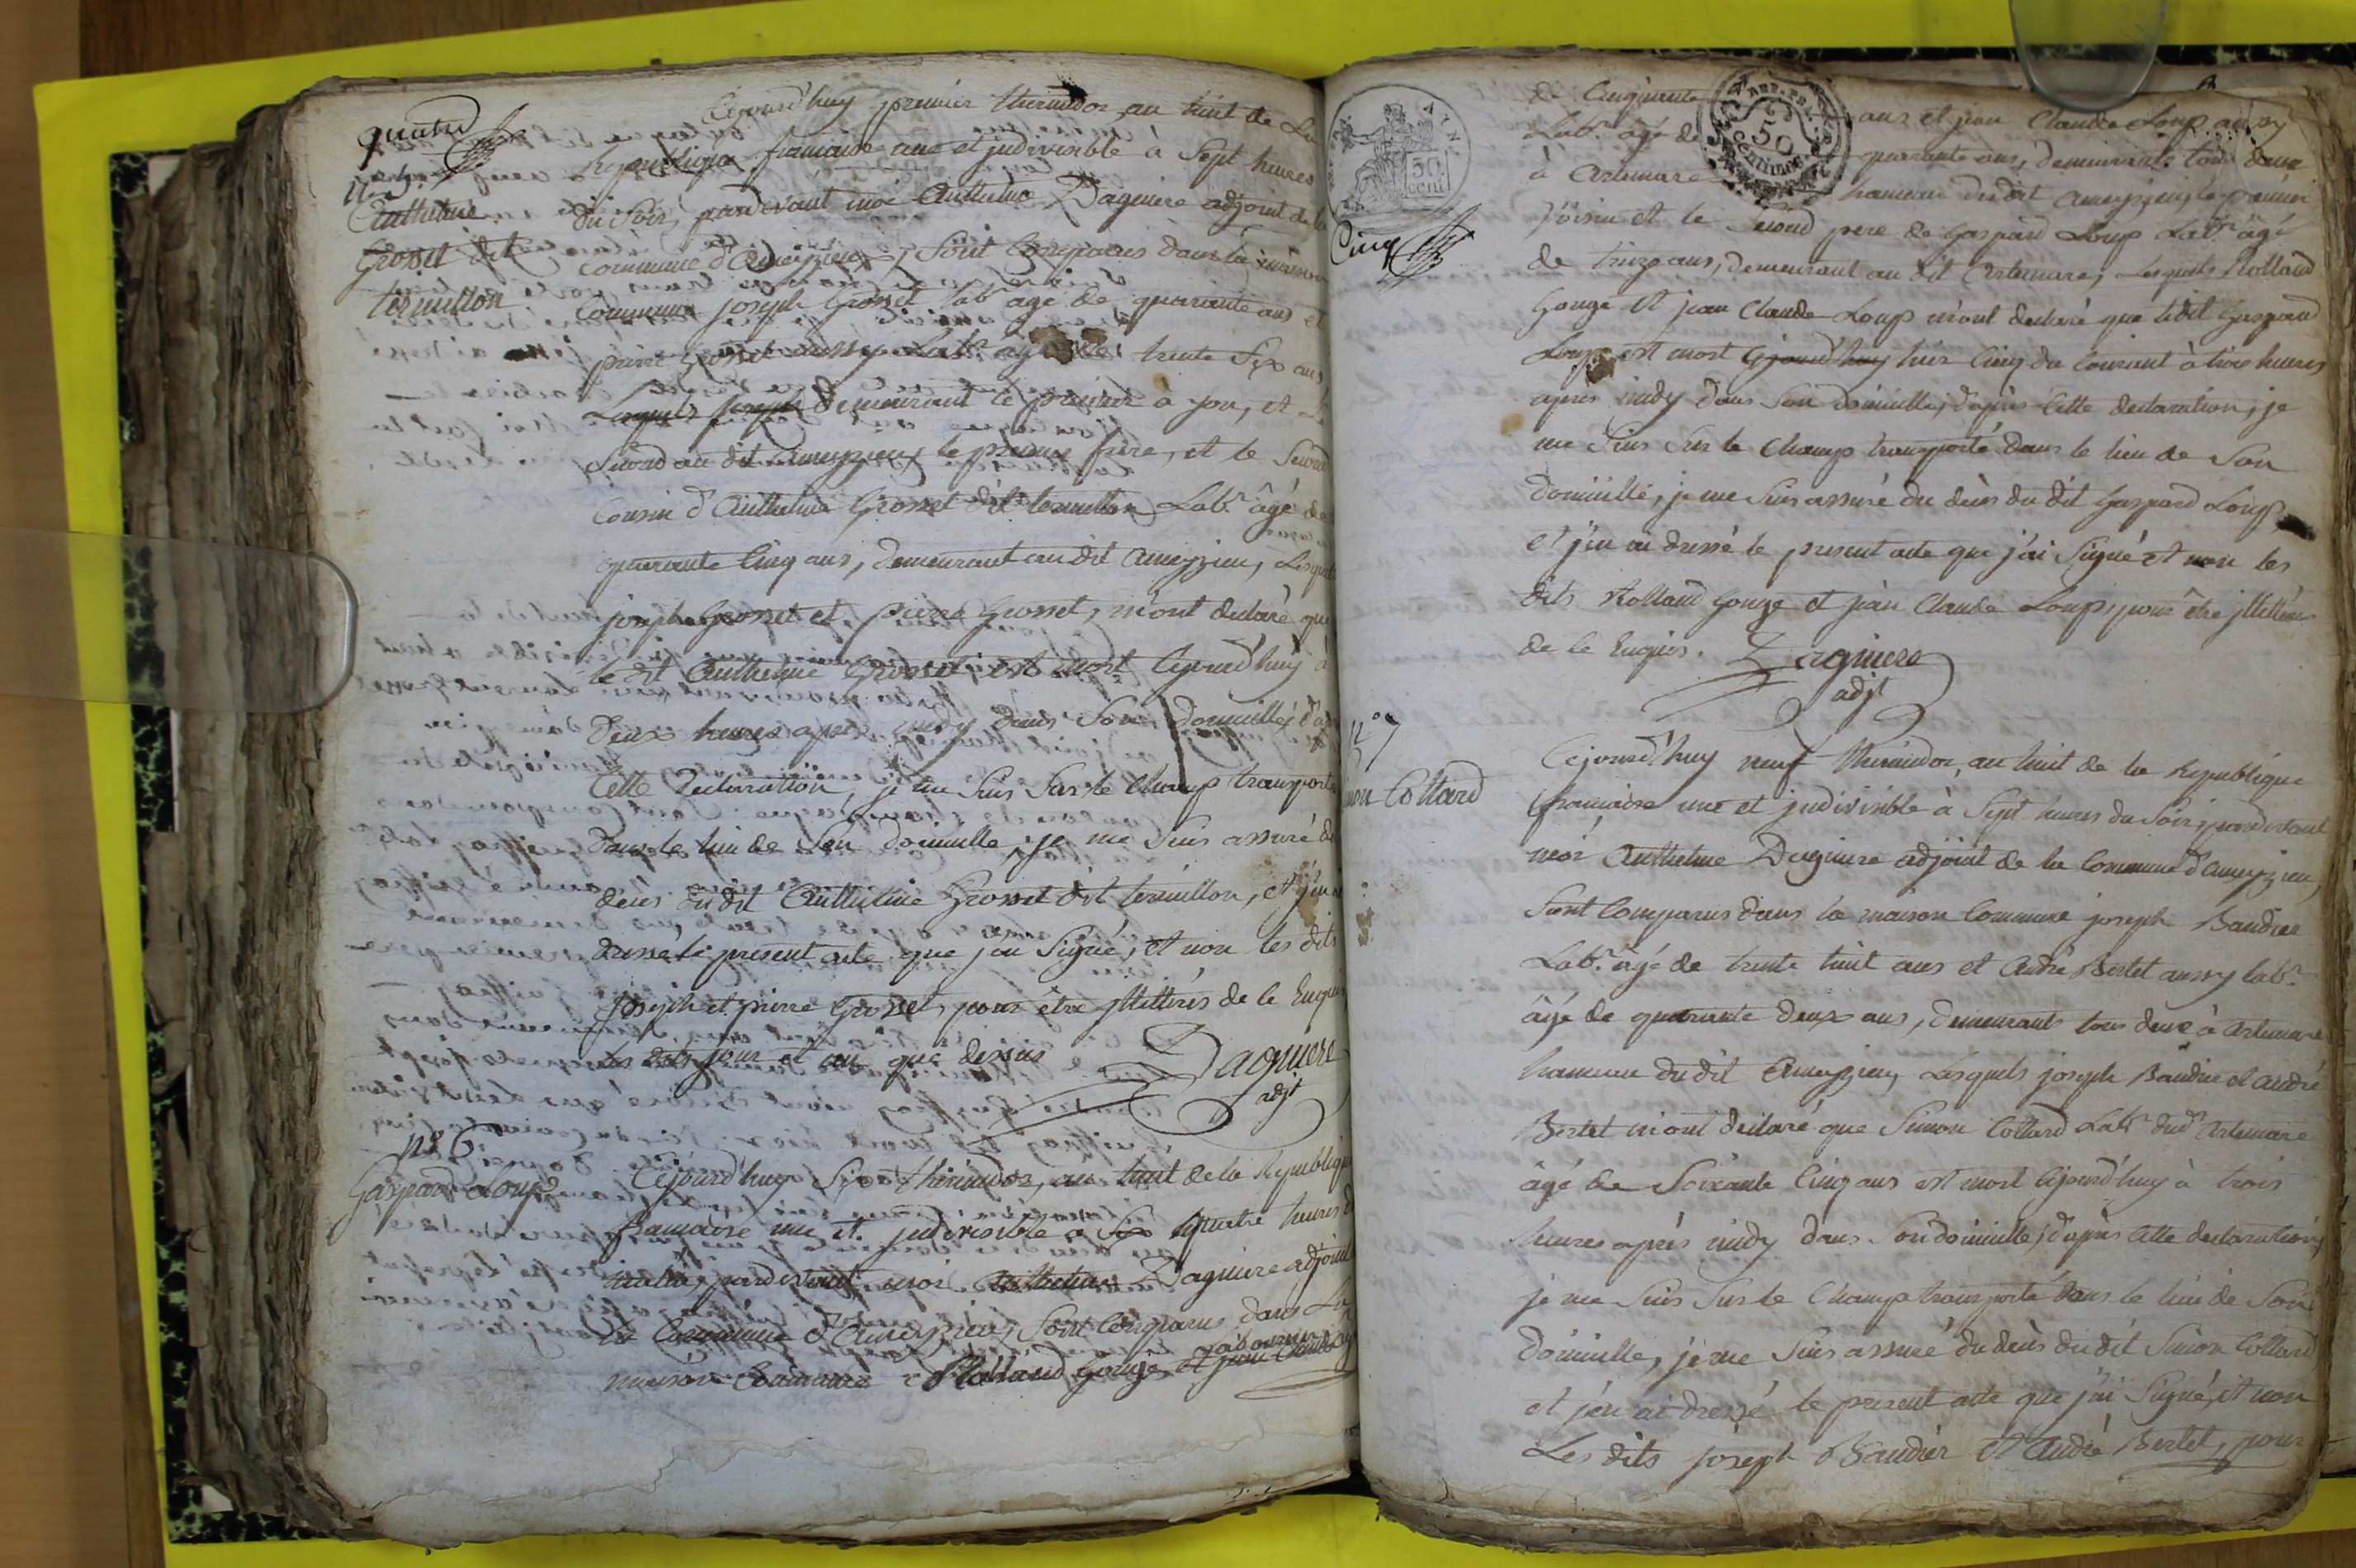 quatre
n° 5
Anthelme
Grosset dit
termillon
Cejourd'huy premier thermidor, an huit de La
Republique francaise une et jndivisible à Sept heures
du Soir, pardevant moi Anthelme Dagniere adjoint de la
Commune d'Ameyzieu, Sont Comparus dans la maison
Commune joseph Grosset lab.r agé de quarante ans et
pierre Grosset aussy Lab.r âgé de trente Six ans
Lesquels joseph demeurant le premier à yon, et Le
Second au dit Ameyzieu, le premier frère, et le Second
Cousin d'Anthelme Grosset dit termillon Lab.r âgé de
quarante Cinq ans, demeurant au dit Ameyzieu, Lesquels
joseph Grosset et pierre Grosset, m'ont declaré que
le dit Anthelme Grosset est mort Cejourd'huy à
deux heures après midy dans Son domicille, d'après
Cette declaration, je me Suis Sur le Champ transporté
dans le lieu de Son domicille, je me Suis assuré du
décès du dit Anthelme Grosset dit termillon, et j'en ai
dressé le present acte que j'ai Signé, et non les dits
Joseph et pierre Grosset, pour être jllettérés de Ce Enquis
les dits jour et an que dessus
Dagniere
adjt
n° 6
Gaspard Loup
Cejourd'huy Six thermidor, an huit de la Republique
francaise une et jndivisible à Six quatre heures du
matin, pardevant moi Anthelme Dagniere adjoint
de la Commune d'Ameyzieu, Sont Comparus dans La
maison Commune Rolland Gouge laboureur et jean Claude agé
Cinq
50
cent
REP. FRA.
50
centimes
de Cinquante ans et jean Claude Loup aussy
Lab.r âgé de quarante ans, demeurants tous deux
à Artemare hameau du dit Ameyzieu, le premier
Voisin et le Second pere de Gaspard Loup Lab.r âgé
de treize ans, demeurant au dit Artemare, Lesquels Rolland
Gouge et jean Claude Loup m'ont declaré que ledit Gaspard
Loup est mort Cejourd'huy hier Cinq du Courant à trois heures
après midy dans Son domicille, d'après Cette declaration, je
me Suis Sur le Champ transporté dans le lieu de Son
domicille, je me Suis assuré du décès du dit Gaspard Loup
et j'en ai dressé le present acte que j'ai Signé et non les
dits Rolland Gouge et jean Claude Loup, pour être jllettérés
de Ce Enquis. Dagniere
adjt
n° 7
mon Collard
Cejourd'huy neuf thermidor, an huit de la Republique
francaise une et jndivisible à Sept heures du Soir, pardevant
moi Anthelme Dagniere adjoint de la Commune d'Ameyzieu,
Sont Comparus dans la maison Commune joseph Baudier
Lab.r âgé de trente huit ans et André Bertet aussy lab.r
âgé de quarante deux ans, demeurants tous deux à Artemare
hameau du dit Ameyzieu, Lesquels joseph Baudier et andré
Bertet m'ont declaré que Simon Collard Lab.r dud Artemare
âgé de Soixante Cinq ans est mort Cejourd'huy à trois
heures après midy dans Son domicille, d'après Cette declaration,
je me Suis Sur le Champ transporté dans le lieu de Son
domicille, je me Suis assuré du décès du dit Simon Collard
et j'en ai dressé le present acte que j'ai Signé, et non
Les dits joseph Baudier et André Bertet, pour